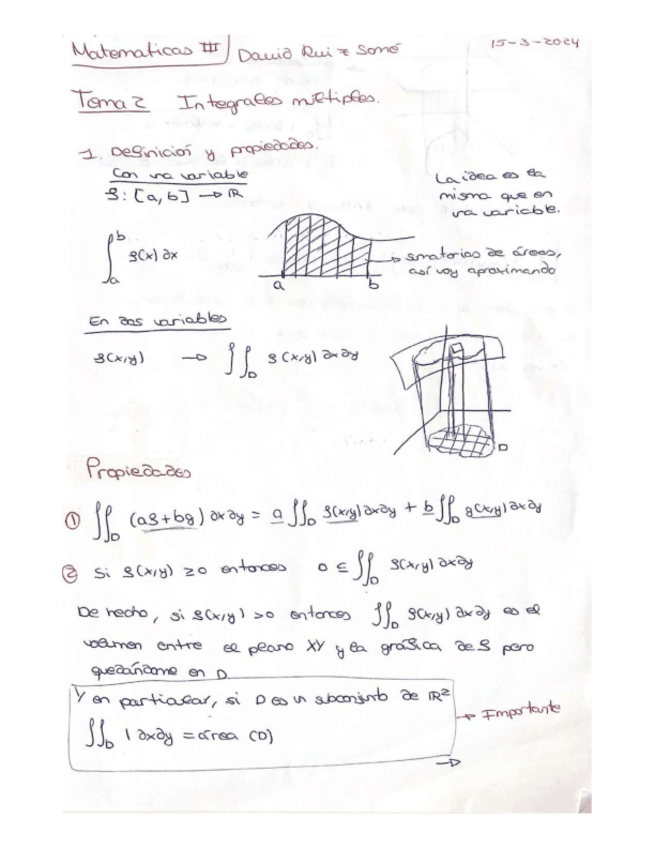 Matematicas III David Ruiz Somé 15-3-2024
Tema 2 Integrales múltiples.
1. Definición y propiedades.
Con una variable
f: [a, b] → ℝ
La idea es la
misma que en
una variable.
∫_a^b f(x) ∂x
a b
→ sumatorias de áreas,
así voy aproximando
En dos variables
f(x,y) → ∬_D f(x,y) ∂x∂y
D
Propiedades
① ∬_D (af+bg) ∂x∂y = a ∬_D f(x,y) ∂x∂y + b ∬_D g(x,y) ∂x∂y
② Si f(x,y) ≥0 entonces 0 ≤ ∬_D f(x,y) ∂x∂y
De hecho, si f(x,y) >0 entonces ∬_D f(x,y) ∂x∂y es el
volumen entre el plano XY y la gráfica de f pero
quedándome en D.
Y en particular, si D es un subconjunto de ℝ²
→ Importante
∬_D 1 ∂x∂y = área (D)